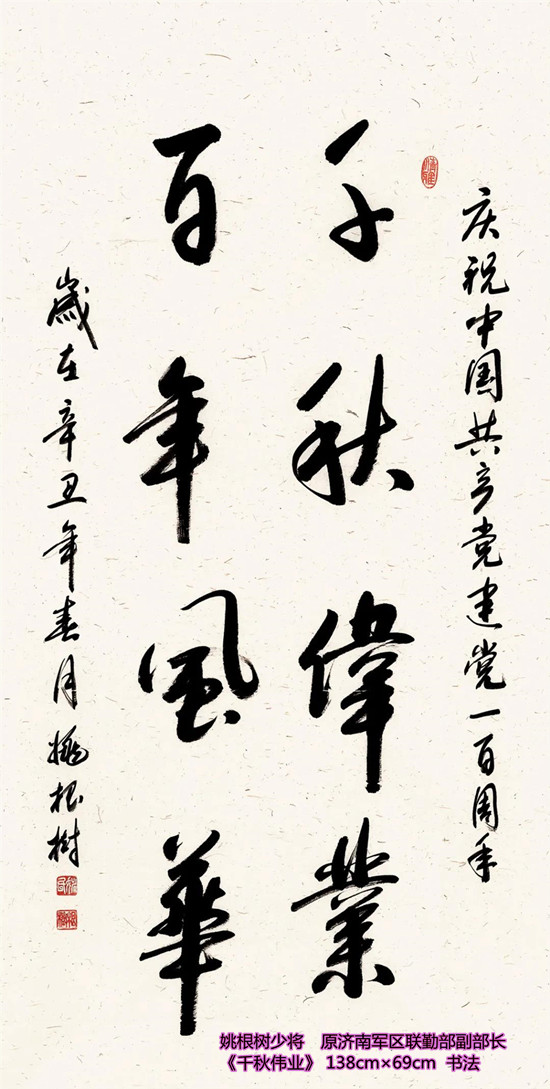 庆祝中国共产党建党一百周年
千秋偉業
百年風華
歲在辛丑年春月姚根树
姚根树少将 原济南军区联勤部副部长
《千秋伟业》 138cm×69cm 书法